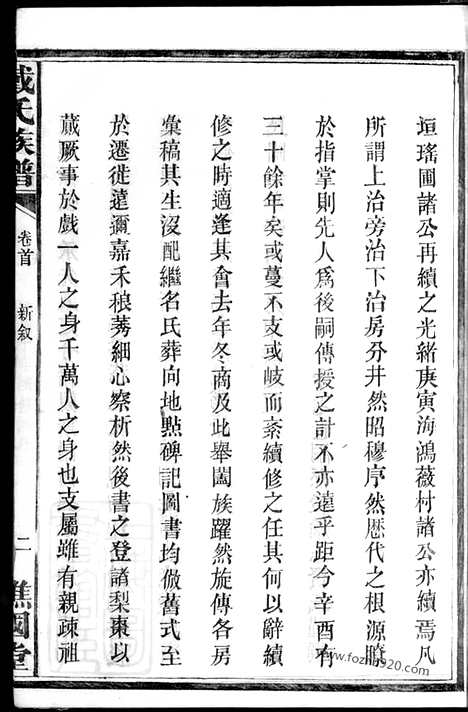 垣瑤圃諸公再續之光緒庚寅海鴻薇村諸公亦續焉凡
所謂上治旁治下治房分井然昭穆序然歷代之根源瞭
於指掌則先人爲後嗣傳授之計不亦遠乎距今辛酉有
三十餘年矣或蔓不支或岐而紊續修之任其何以辭續
修之時適逢其會去年冬商及此舉闔族躍然旋傳各房
彙稿其生沒配繼名氏葬向地點碑記圖書均倣舊式至
於遷徙遠邇嘉禾稂莠細心察析然後書之登諸梨棗以
蕆厥事於戲一人之身千萬人之身也支屬雖有親疎祖
戴氏族譜
卷首
新敘
二
譙國堂
www.fozhu920.com